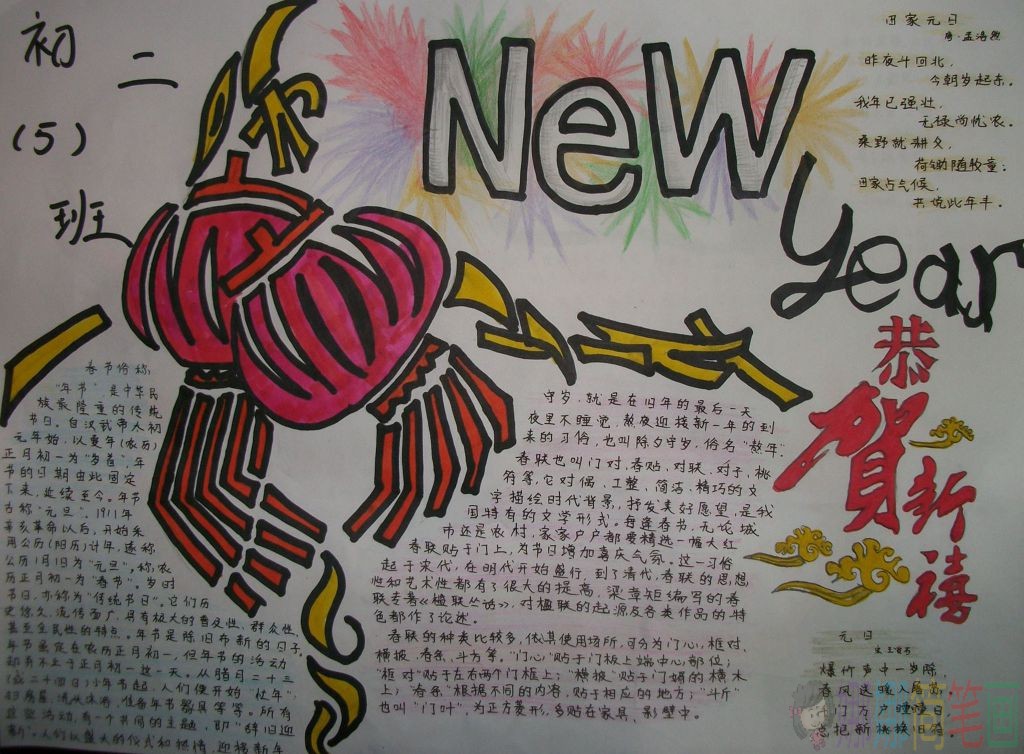 初二
(5)
班
New
Year
田家元日
唐·孟浩然
昨夜斗回北，
今朝岁起东。
我年已强壮，
无禄尚忧农。
桑野就耕父，
荷锄随牧童；
田家占气候，
共说此年丰。
恭
贺
新
禧
春节俗称
"年节"，是中华民
族最隆重的传统
节日。自汉武帝太初
元年始，以夏年(农历)
正月初一为"岁首"，年
节的日期由此固定
下来，延续至今。年节
古称"元旦"。1911年
辛亥革命以后，开始采
用公历(阳历)计年，遂称
公历1月1日为"元旦"，称农
历正月初一为"春节"。岁时
节日，亦称为"传统节日"。它们历
史悠久，流传面广，具有极大的普及性、群众性、
甚至全民性的特点。年节是除旧布新的日子。
年节虽定在农历正月初一，但年节的活动
却并不止于正月初一这一天。从腊月二十三
(或二十四日)小年节起，人们便开始"忙年"：
准备年节器具等等。所有
这些活动，有一个共同的主题，即"辞旧迎
新"。人们以盛大的仪式和热情，迎接新年
守岁，就是在旧年的最后一天
夜里不睡觉，熬夜迎接新一年的到
来的习俗，也叫除夕守岁，俗名"熬年"
春联也叫门对、春贴、对联、对子、桃
符等，它对偶、工整、简洁、精巧的文
字描绘时代背景，抒发美好愿望，是我
国特有的文学形式。每逢春书，无论城
市还是农村，家家户户都要精选一幅大红
春联贴于门上，为节日增加喜庆气氛。这一习俗
起于宋代，在明代开始盛行，到了清代，春联的思想
性和艺术性都有了很大的提高，梁章矩编写的春
联专著《楹联丛话》，对楹联的起源及各类作品的特
色都作了论述。
春联的种类比较多，依其使用场所，可分为门心、框对、
横披、春条、斗方等。"门心"贴于门板上端中心部位；
"框对"贴于左右两个门框上；"横披"贴于门媚的横木
上；"春条"根据不同的内容，贴于相应的地方；"斗斤"
也叫"门叶"，为正方菱形，多贴在家具、影壁中。
元日
爆竹声中一岁除
春风送暖入屠苏
门万户曈曈日
总把新桃换旧符
简笔画